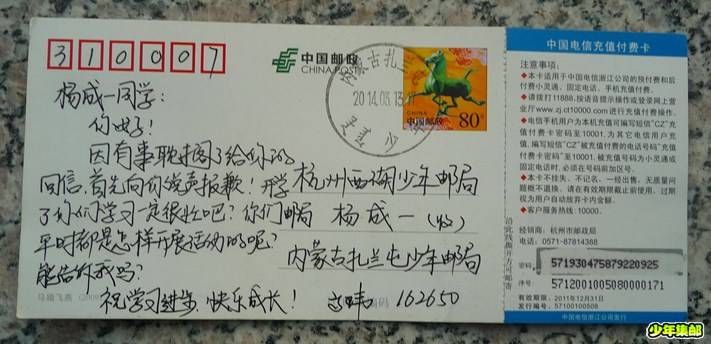 310007
中国邮政
CHINA POST
杨成一同学：
你好！
因有事耽搁了给你的
回信，首先向你说声报歉！开学
了你们学习一定很忙吧？你们邮局
平时都是怎样开展活动的呢？
能告诉我吗？
祝学习进步、快乐成长！
杭州西湖少年邮局
杨成一（收）
内蒙古扎兰屯少年邮局
邮政编码 162650
马踏飞燕
古扎兰
2014.03.13.17
少
CHINA
中国邮政
80分
沿此线撕开方可邮寄
中国电信充值付费卡
注意事项：
◆本卡适用于中国电信浙江公司的预付费和后
付费小灵通、固定电话、手机充值付费。
◆请拨打11888,按语音提示操作或登录网上营
业厅www.zj.ct10000.com进行充值付费。
◆电信手机用户为本机充值可编写短信"CZ"充
值付费卡密码至10001,为其它电信用户充
值,编写短信"CZ"被充值付费的电话号码"充值
付费卡密码"至10001,被充值号码为小灵通或
固定电话时,必须在号码前加区号。
◆本卡不挂失、不记名、一经出售、无质量问
题概不退换、请在有效期限截止前使用，过期
视为用户自动放弃卡内金额。
◆客户服务热线：10000。
经销商：杭州市邮政局
电话：0571-87814388
密码：
571930475879220925
序号：
5712001005080000171
有效期限：2011年12月31日
发行编号：57100100508
中国电信浙江公司发行
少年集邮